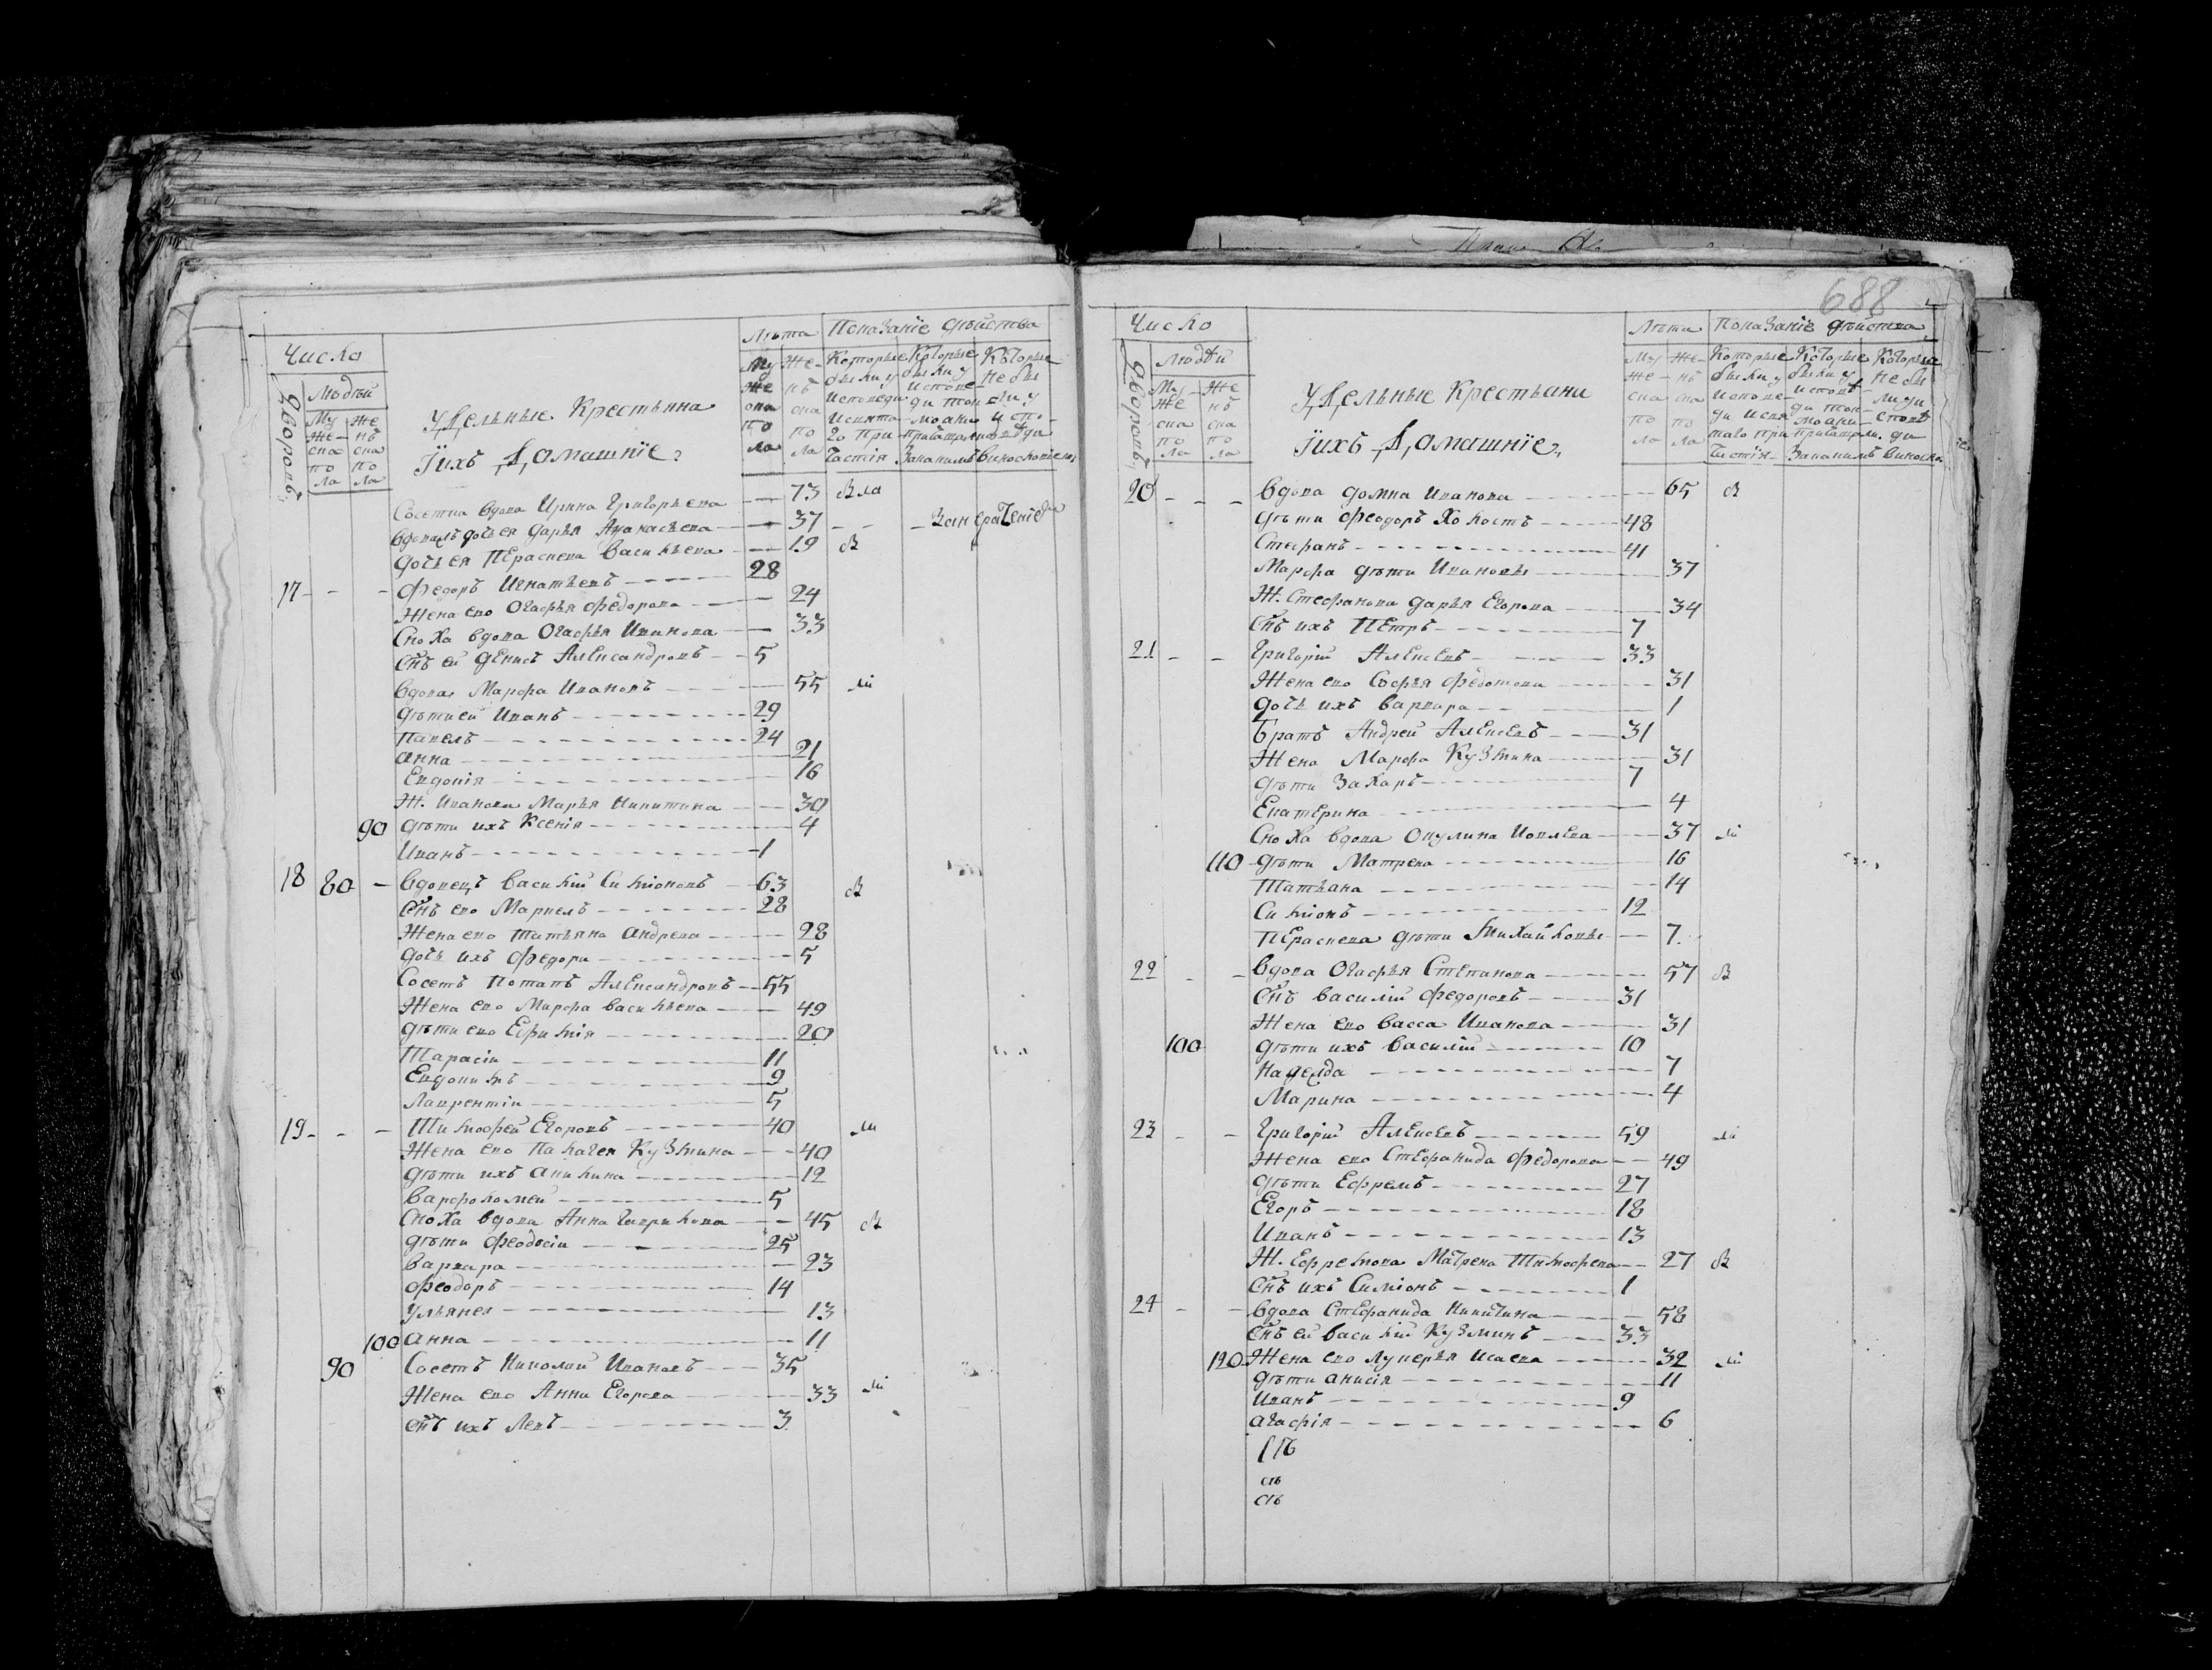 Число
Людѣй
Дворовъ
Му
же-
ска
по
ла
Же
нс
ска
по
ла
Удѣльные Крестьяна
Їихъ Домашнїе
Лѣта
Му
же
ска
по
ла
Же-
нс
ска
по
ла
Показанїе дѣйства
Которые
были у
исповеди
Которые
были у
исповѣ-
ди
Которые
не бы
ли у
и спо-
Сосетка вдова Ирина Григорьева — 73 Вла
Вдова дочь ея Дарья Афанасьева — 37 — За нерачениемъ
Дочь ея Пераскева Васильева — 19 В
17 - - - Федоръ Игнатьевъ — 28
Жена его Огафья Федорова — 24
Сноха вдова Огафья Иванова — 33
Снъ ей Денисъ Александровъ — 5
Вдова Марфа Ивановъ — 55 ли
Дѣти ей Иванъ — 29
Павелъ — 24
Анна — 21
Евдокія — 16
Ж. Иванова Марья Никитина — 30
90 Дѣти ихъ Ксенія — 4
Иванъ — 1
18 80 - Вдовецъ Василій Симіоновъ — 63 В
Снъ его Маркелъ — 28
Жена его Татьяна Андрева — 28
Дочь ихъ Федора — 5
Сосетъ Потапъ Александровъ — 55
Жена его Марфа Васильева — 49
Дѣти его Ефимія — 20
Тарасіи — 11
Евдокимъ — 9
Лаврентіи — 5
19 - - - Тимофей Егоровъ — 40 ли
Жена его Палагея Кузмина — 40
Дѣти ихъ Акилина — 12
Варфоломей — 5
Сноха вдова Анна Гаврилова — 45 В
Дѣти Феодосіи — 25
Варвара — 23
Феодоръ — 14
Ульянея — 13
100 Анна — 11
90 Сосетъ Николай Ивановъ — 35
Жена его Анна Егорова — 33 ли
Снъ ихъ Левъ — 3
688
Число
Людѣй
Дворовъ
Му
же
ска
по
ла
Же
нс
ска
по
ла
Удѣльные Крестьяна
Їихъ Домашнїе
Лѣта
Му
же-
ска
по
ла
Же-
нс
ска
по
ла
Показанїе дѣйства
Которые
были у
исповѣ-
Которые
были у
исповѣ-
Которые
не бы
ли у
20 - - - Вдова Домна Иванова — 65 В
Дѣти Феодоръ Холостъ — 48
Стефанъ — 41
Марфа дѣти Ивановы — 37
Ж. Стефанова Дарья Егорова — 34
Снъ ихъ Петръ — 7
21 - - Григорій Алексевъ — 33
Жена его Софья Федотова — 31
Дочь ихъ Варвара — 1
Братъ Андрей Алексевъ — 31
Жена Марфа Кузмина — 31
Дѣти Захаръ — 7
Екатерина — 4
Сноха вдова Окулина Иовлева — 37 ли
110 Дѣти Матрена — 16
Татьана — 14
Симіонъ — 12
Пераскева дѣти Михайловы — 7
22 - - Вдова Огафья Степанова — 57 В
Снъ Василій Федоровъ — 31
Жена его Васса Иванова — 31
100 Дѣти ихъ Василій — 10
Надежда — 7
Марина — 4
23 - - Григорій Алексевъ — 59 ли
Жена его Стефанида Федорова — 49
Дѣти Ефремъ — 27
Егоръ — 18
Иванъ — 13
Ж. Ефремова Матрена Тимофева — 27 В
Снъ ихъ Симіонъ — 1
24 - - Вдова Стефанида Никитина — 58
Снъ ей Василій Кузминъ — 33
120 Жена его Лукерья Исаева — 32 ли
Дѣти Анисія — 11
Иванъ — 9
Агафія — 6